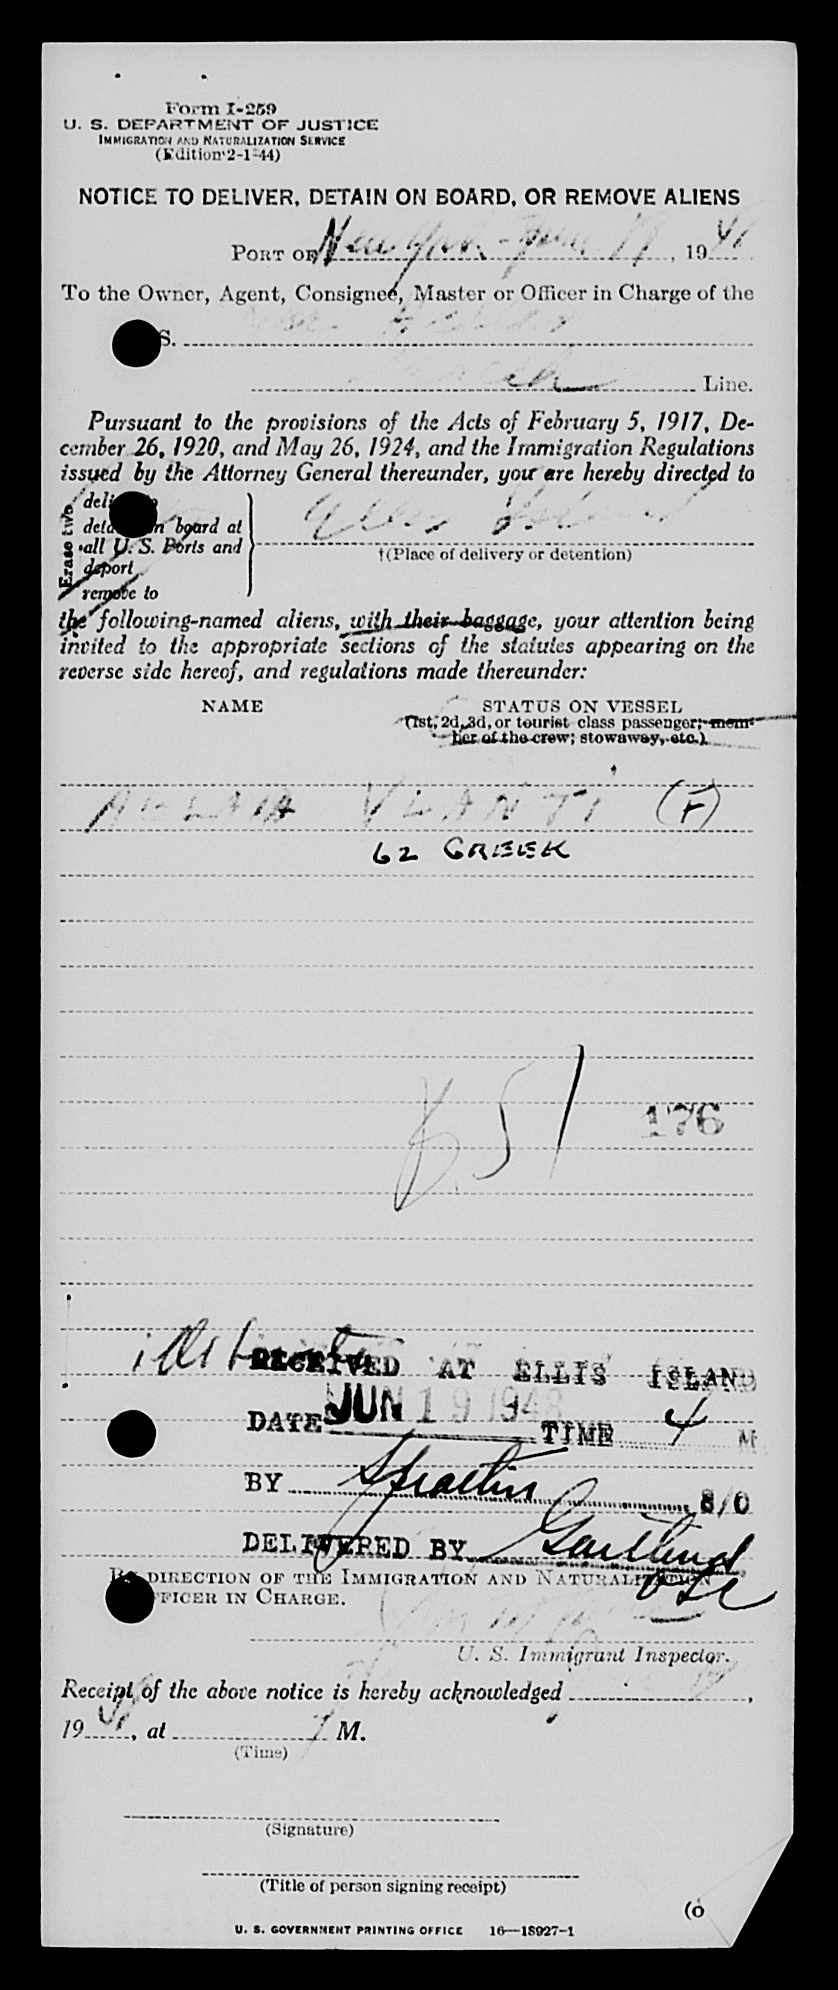 Form I-259
U. S. DEPARTMENT OF JUSTICE
IMMIGRATION AND NATURALIZATION SERVICE
(Edition 2-1-44)
NOTICE TO DELIVER, DETAIN ON BOARD, OR REMOVE ALIENS
PORT OF New York - June 19, 1948
To the Owner, Agent, Consignee, Master or Officer in Charge of the
S.
Line.
Pursuant to the provisions of the Acts of February 5, 1917, De-
cember 26, 1920, and May 26, 1924, and the Immigration Regulations
issued by the Attorney General thereunder, you are hereby directed to
Erase two
deliver to
detain on board at
all U. S. Ports and
deport
remove to
Ellis Island
†(Place of delivery or detention)
the following-named aliens, with their baggage, your attention being
invited to the appropriate sections of the statutes appearing on the
reverse side hereof, and regulations made thereunder:
NAME STATUS ON VESSEL
(1st, 2d, 3d, or tourist class passenger; mem-
ber of the crew; stowaway, etc.)
VLANTI (F)
62 GREEK
51
176
RECEIVED AT ELLIS ISLAND
DATE JUN 19 1948 TIME 4 M
BY S/O
DELIVERED BY
BY DIRECTION OF THE IMMIGRATION AND NATURALIZATION
OFFICER IN CHARGE.
U. S. Immigrant Inspector.
Receipt of the above notice is hereby acknowledged ,
1948, at M.
(Time)
(Signature)
(Title of person signing receipt)
(o
U. S. GOVERNMENT PRINTING OFFICE 16—18927-1